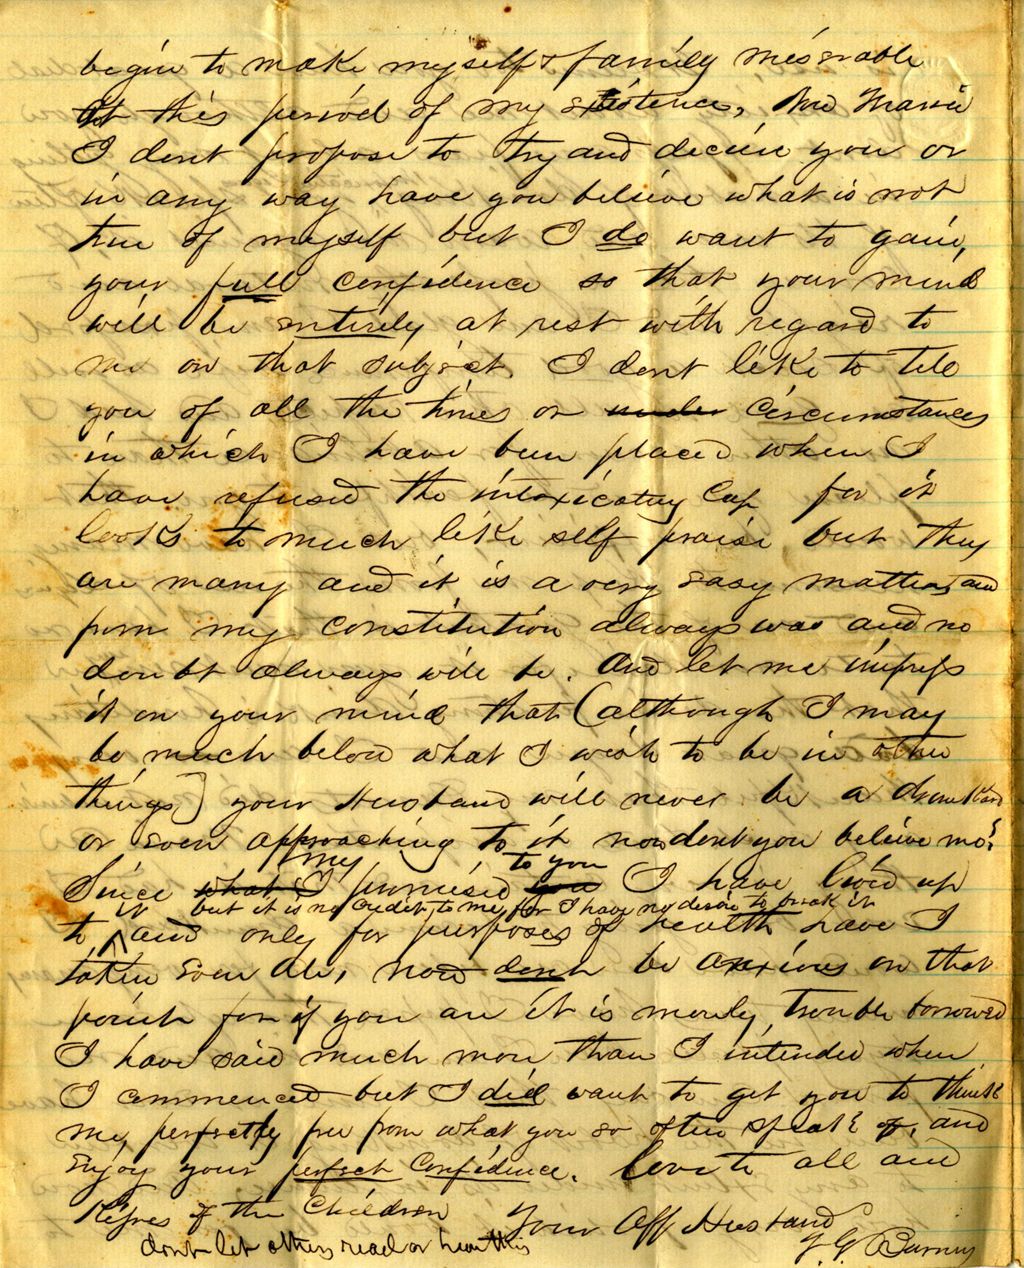 begin to make myself & family miserable
At this period of my existence, Now Maria
I dont propose to try and decieve you or
in any way have you believe what is not
true of myself but I do want to gain,
your full confidence so that your mind
will be entirely at rest with regard to
me on that subject. I dont like to tell
you of all the times or under circumstances
in which I have been placed when I
have refused the intoxicating Cup for it
looks to much like self praise but they
are many and it is a very easy matter, and
from my constitution always was and no
doubt always will be. And let me impress
it on your mind that (although I may
be much below what I wish to be in other
things) your Husband will never be a drunkard
or even approaching to it now dont you believe me?
Since what I my promised you to you I have lived up
to it but it is no credit to me for I have no desire to break it
and only for purposes of health have I
taken even Ale, now dont be anxious on that
point for if you are it is merely trouble borrowed
I have said much more than I intended when
I commenced but I did want to get you to think
me, perfectly free from what you so often speak of, and
enjoy your perfect confidence. Love to all and
Kisses of the Children
Your Aff Husband
Barney
dont let others read or hear this